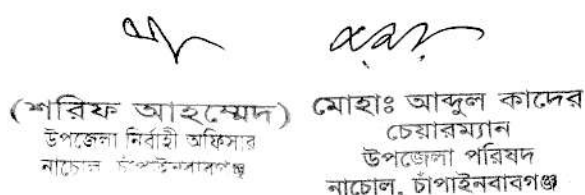 (শরিফ আহম্মেদ)
উপজেলা নির্বাহী অফিসার
নাচোল চাঁপাইনবাবগঞ্জ
মোহাঃ আব্দুল কাদের
চেয়ারম্যান
উপজেলা পরিষদ
নাচোল, চাঁপাইনবাবগঞ্জ